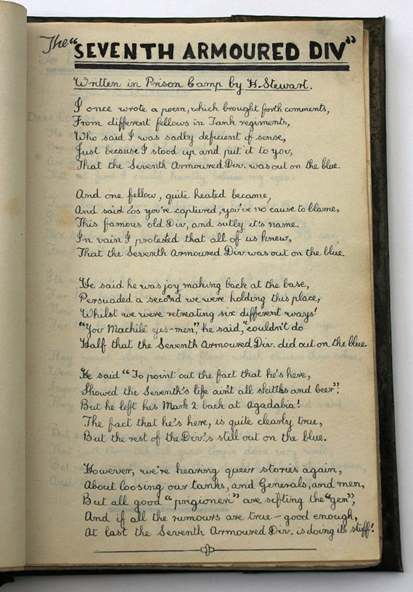 The "SEVENTH ARMOURED DIV"
Written in Prison Camp by H. Stewart.
I once wrote a poem, which brought forth comments,
From different fellows in Tank regiments,
Who said I was sadly deficient of sense,
Just because I stood up and put it to you,
That the Seventh Armoured Div. was out on the blue.
And one fellow, quite heated became,
And said as you're captured, you've no cause to blame,
This famous old Div, and sutly it's name.
In vain I protested that all of us knew,
That the Seventh Armoured Div. was out on the blue.
He said he was joy making back at the base,
Persuaded a second we were holding this place,
Whilst we were retreating six different ways!
"You Machile yes-men", he said, couldn't do
Half that the Seventh Armoured Div. did out on the blue.
He said "To point out the fact that he's here,
Showed the Seventh's life ain't all skittles and beer"!
But he left his Mark 2 back at Agadabia!
The fact that he's here, is quite clearly true,
But the rest of the Div's still out on the blue.
However, we're hearing queer stories again,
About loosing our tanks, and Generals, and men,
But all good "prigioneri" are sifting the "gen",
And if all the rumours are true – good enough,
At last the Seventh Armoured Div. is doing its stuff!